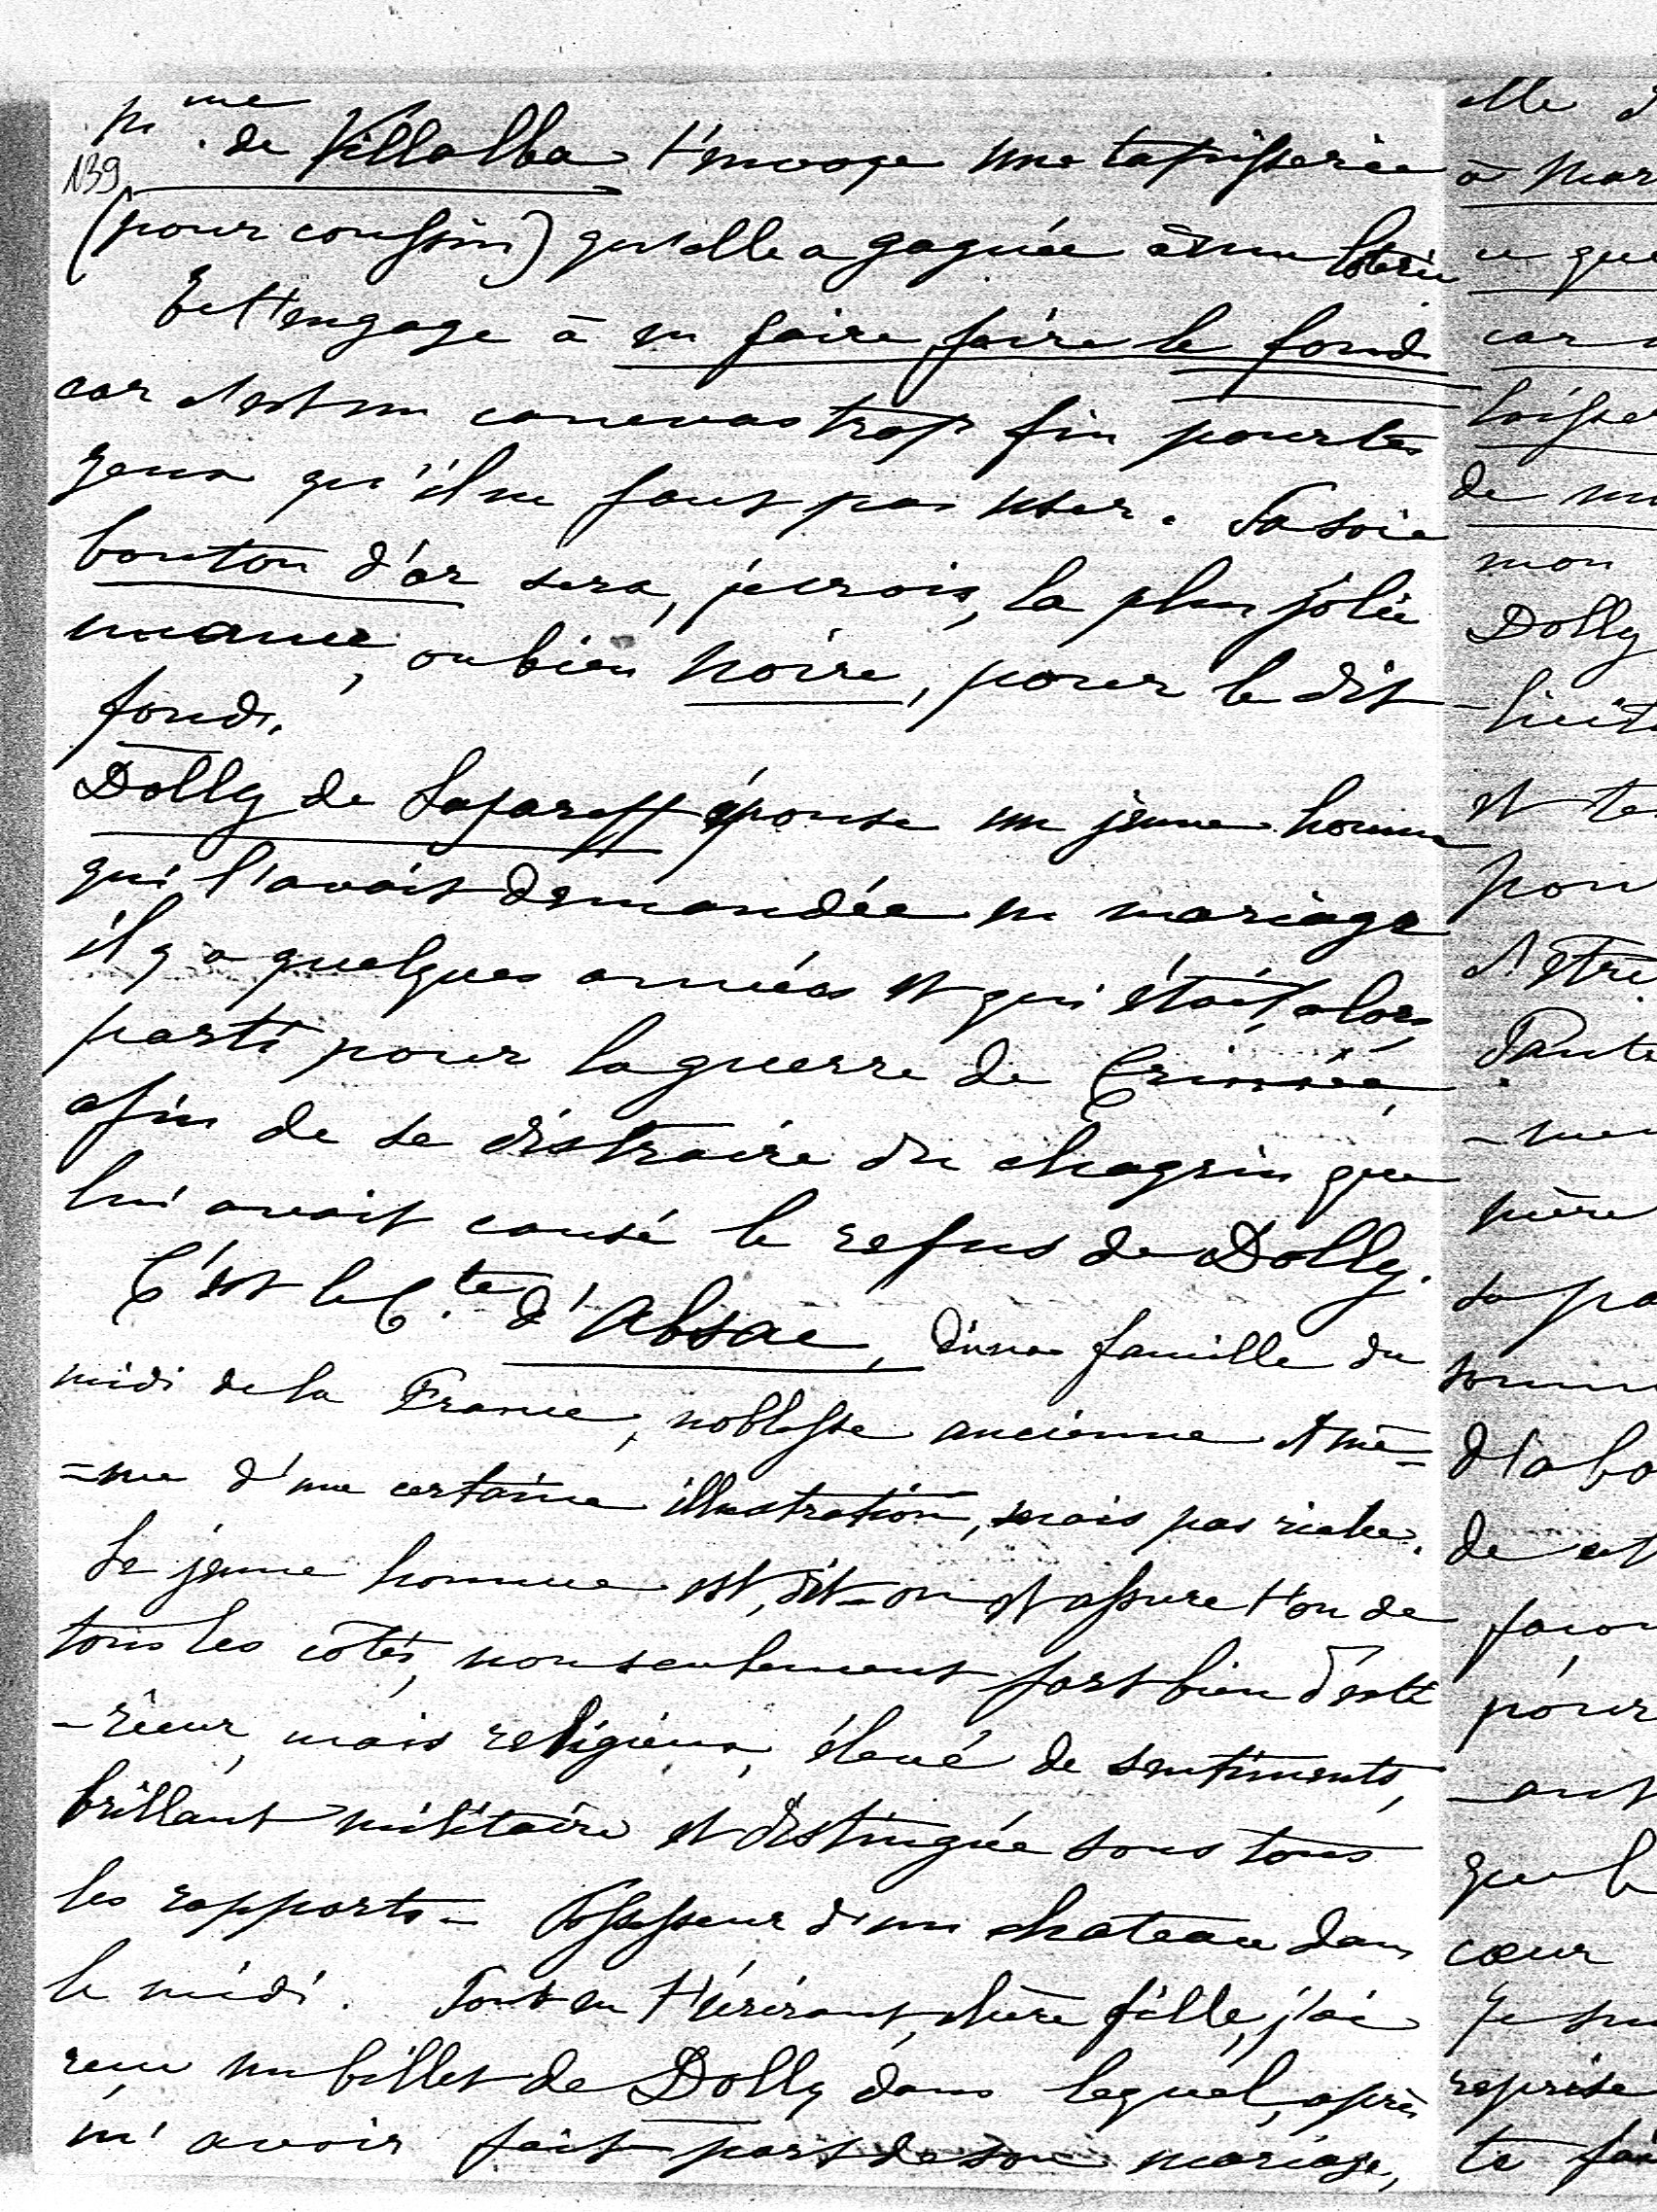 Mme. de Villalba t'envoye une tapisserie
139
(pour coussin) qu'elle a gagnée à une loterie
Et t'engage à en faire faire le fond
car c'est un canevas trop fin pour tes
yeux qu'il ne faut pas user. La soie
bouton d'or sera, je crois, la plus jolie
nuance, ou bien noire, pour le dit
fond.
Dolly de Lazareff épouse un jeune homme
qui l'avait demandée en mariage
il y a quelques années et qui était alors
parti pour la guerre de Crimée,
afin de se distraire du chagrin que
lui avait causé le refus de Dolly.
C'est le Cte d'Absac, d'une famille du
midi de la France, noblesse ancienne et mê=
=me d'une certaine illustration, mais pas riche.
Le jeune homme est, dit-on et assure t'on de
tous les côtés, non seulement fort bien d'exté
-rieur, mais religieux, élevé de sentiments,
brillant militaire et distingué sous tous
les rapports - Possesseur d'un chateau dans
le midi. Tout en t'écrivant, chère fille, j'ai
reçu un billet de Dolly dans lequel, après
m'avoir fait part de son mariage,
elle
à
ce que
car
laisser
de
mon
Dolly
et
pour
d'être
-
père
sa
d'abo
de cet
façon
pour
-ant
que l
cœur
Je
reprise
te